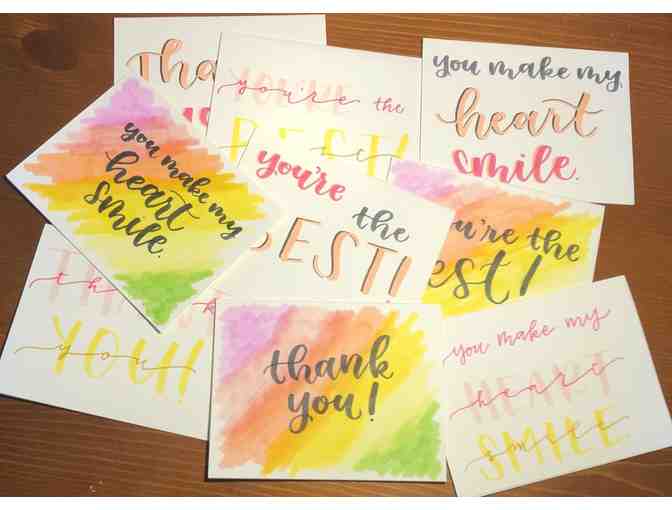 tha
YOU'RE
you're the
BEST!
be
you make my
heart
smile.
you make my
heart
smile.
you're
the
BEST!
u're the
est!
th k
YOU!
you
thank
you!
you make my
HEART
heart
SMILE
smile